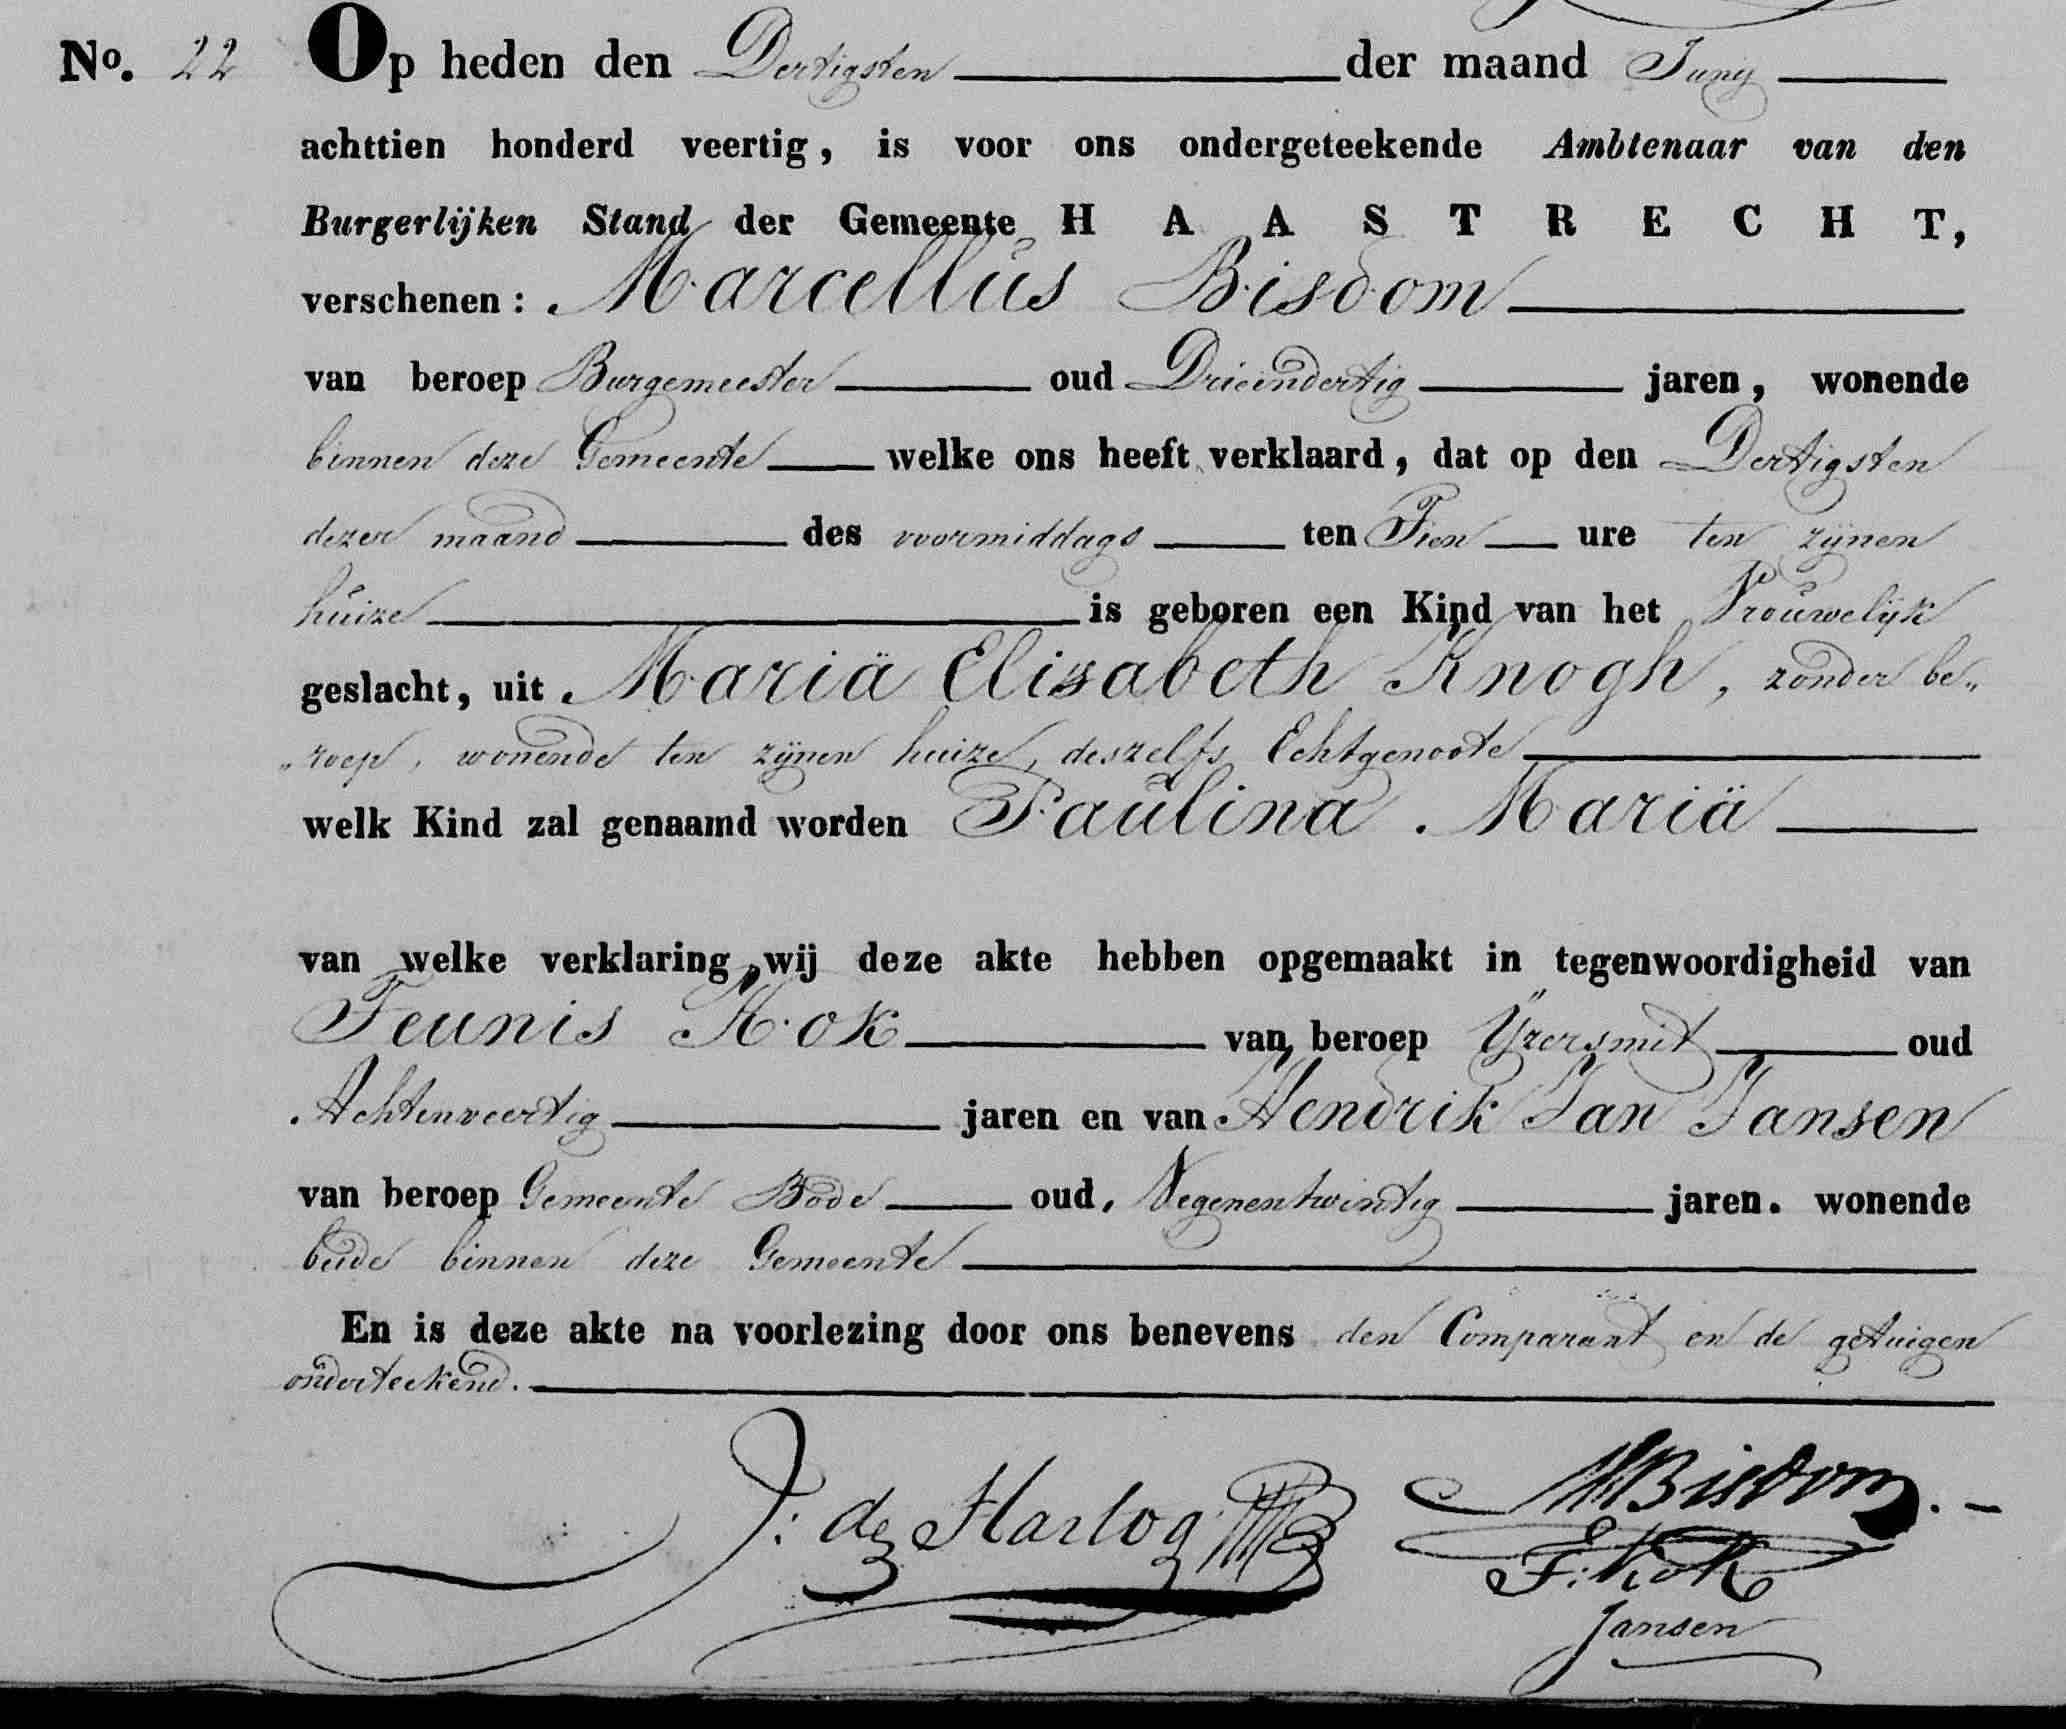 No. 22 Op heden den Dertigsten der maand Junij
achttien honderd veertig, is voor ons ondergeteekende Ambtenaar van den
Burgerlijken Stand der Gemeente HAASTRECHT,
verschenen: Marcellus Bisdom
van beroep Burgemeester oud Drieëndertig jaren, wonende
binnen deze Gemeente welke ons heeft verklaard, dat op den Dertigsten
dezer maand des voormiddags ten Tien ure ten zijnen
huize is geboren een Kind van het Vrouwelijk
geslacht, uit Mariä Elisabeth Knogh, zonder be„
„roep, wonende ten zijnen huize, deszelfs Echtgenoote
welk Kind zal genaamd worden Paulina Mariä
van welke verklaring wij deze akte hebben opgemaakt in tegenwoordigheid van
Teunis Kok van beroep IJzersmit oud
Achtenveertig jaren en van Hendrik Jan Jansen
van beroep Gemeente Bode oud, Negenentwintig jaren. wonende
beide binnen deze Gemeente
En is deze akte na voorlezing door ons benevens den Comparant en de getuigen
onderteekend.
J: de Hartog MBisdom.
T: Kok
Jansen